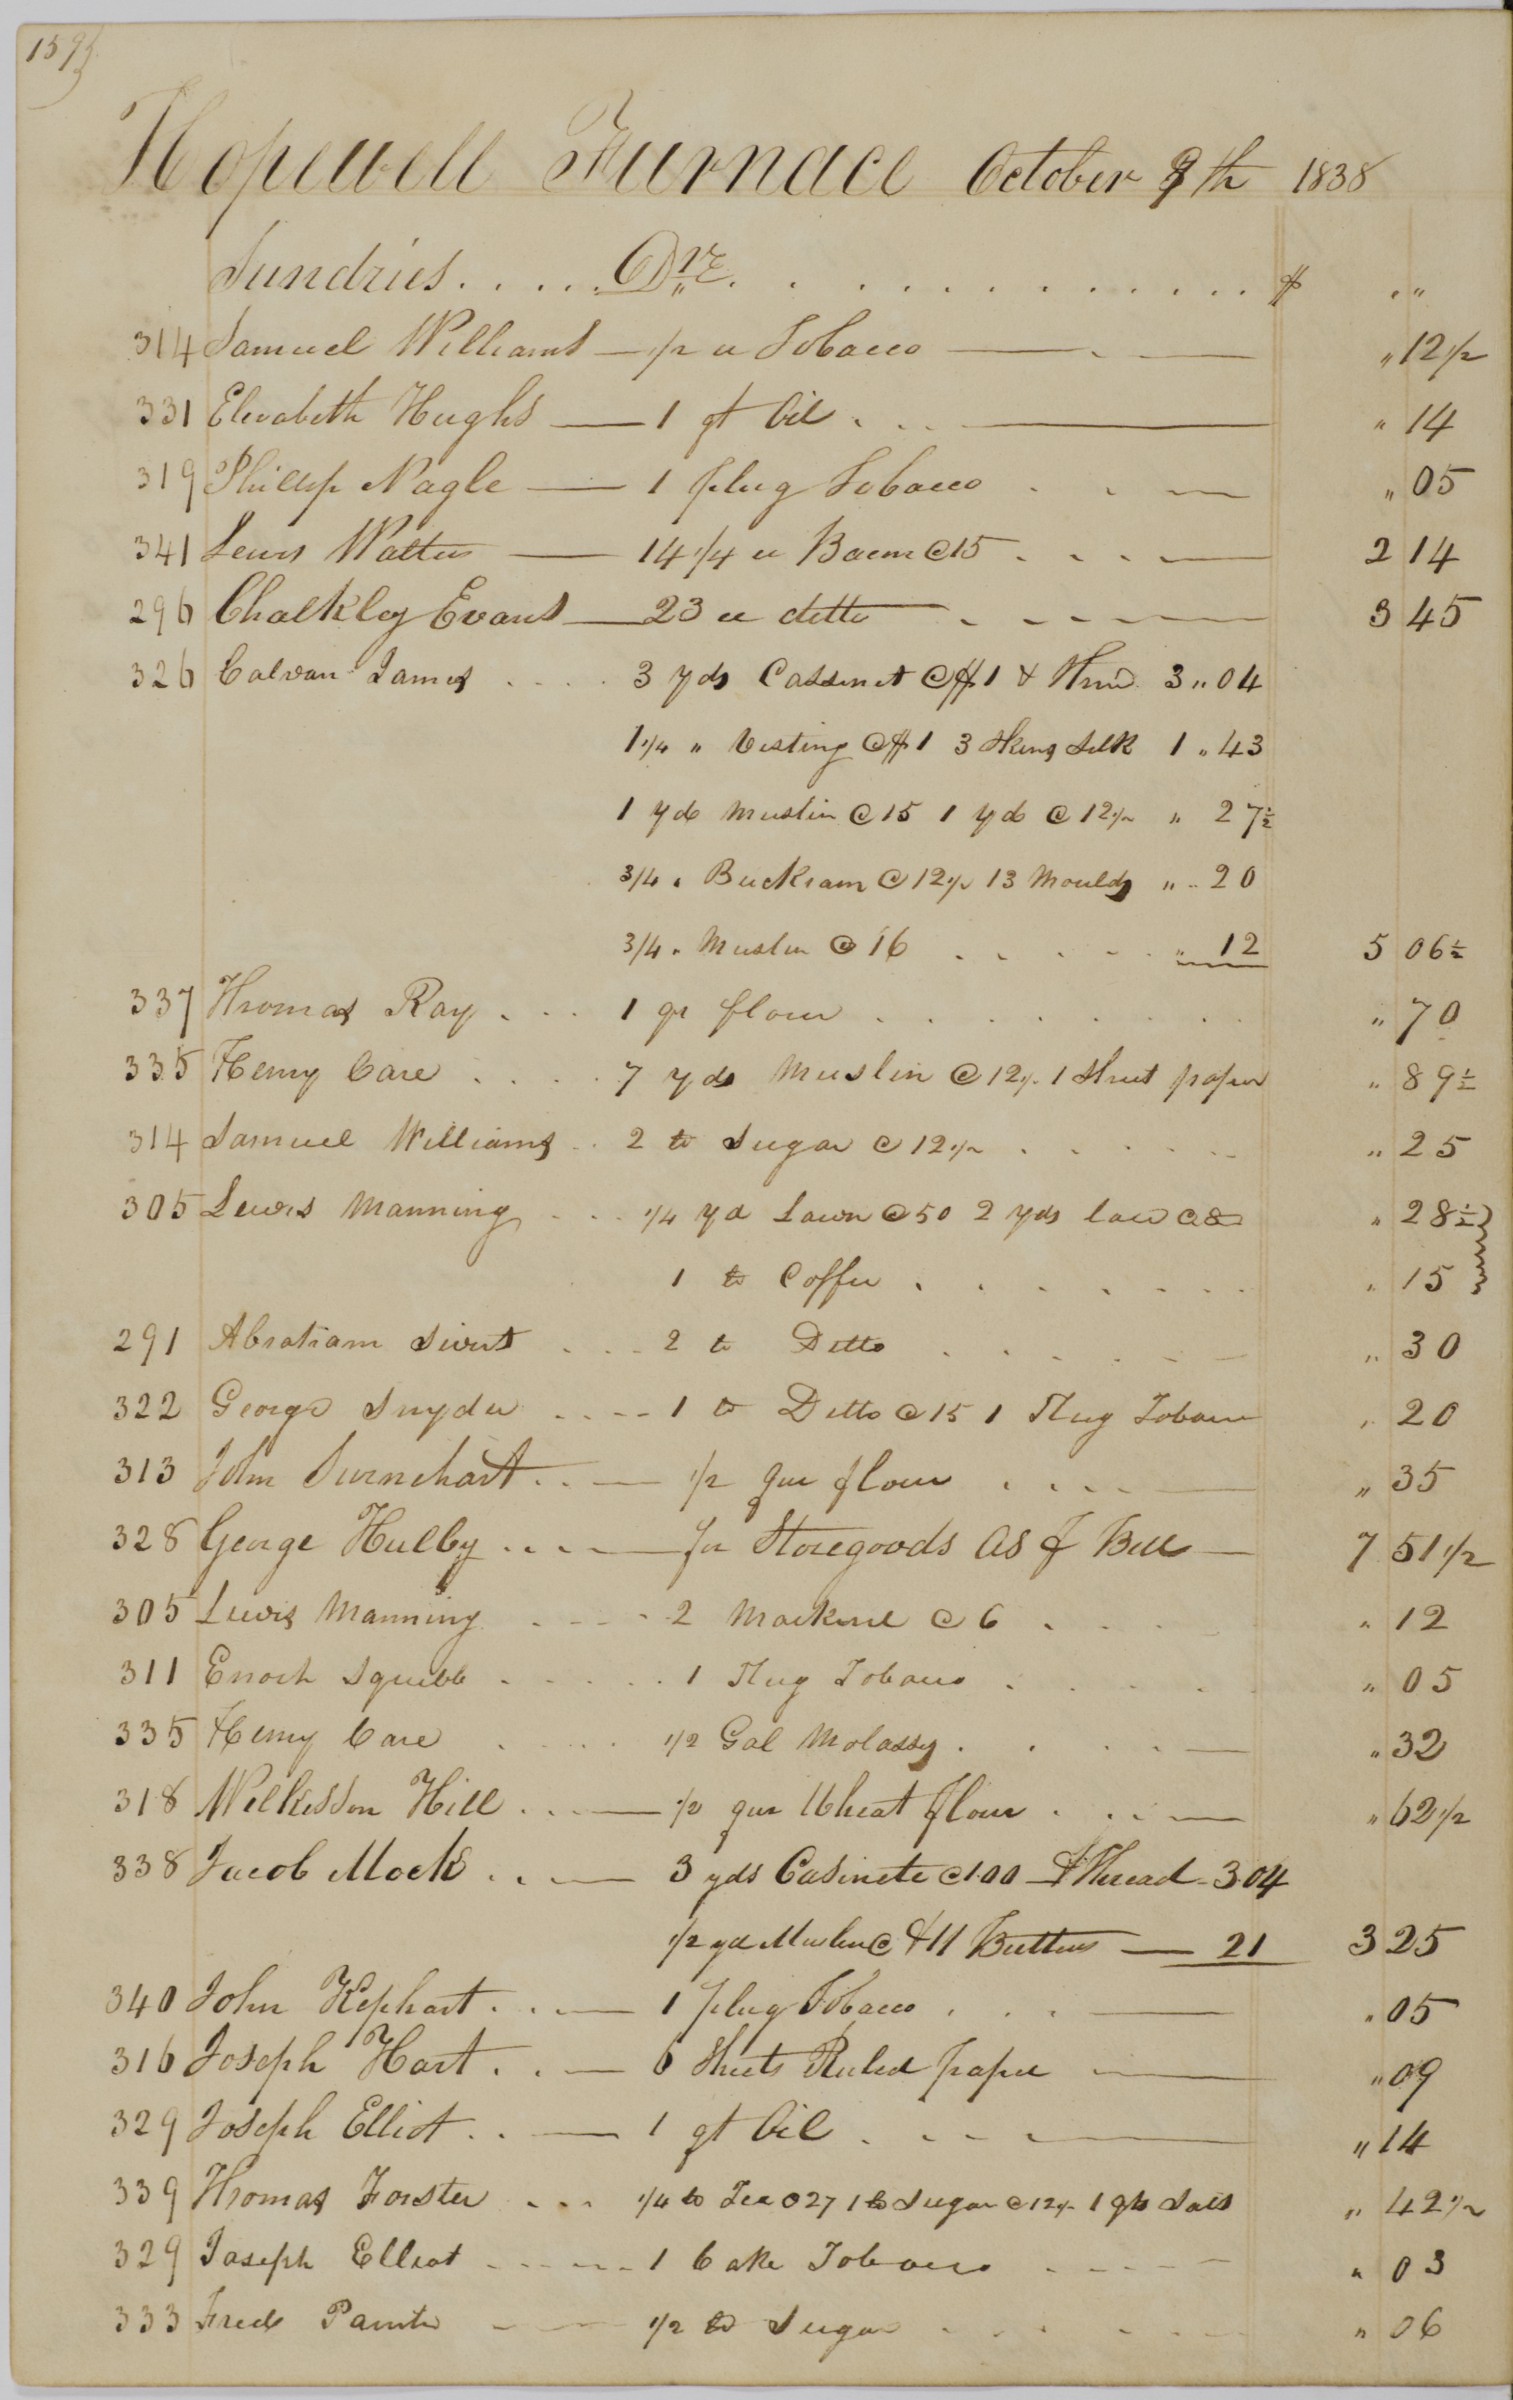 159
Hopewell Furnace October 9th 1838
Sundries . . . . . Drs. . . . . . . . . . . . . . $ " "
314 Samuel Williams — 1/2 lb Tobacco — " 12 1/2
331 Elizabeth Hughs — 1 qt Oil . . . — " 14
319 Phillip Nagle — 1 plug Tobacco . . — " 05
341 Lewis Walters — 14 1/4 lb Bacon @ 15 . . . — 2 14
296 Chalkley Evans — 23 lb ditto — . . — 3 45
326 Calvan James . . . . 3 yds Cassinet @ $1 & Thrd. 3 " 04
1 1/4 " Vesting @ $1 3 Skeins Silk 1 " 43
1 yd Muslin @ 15 1 yd @ 12 1/2 " 27 1/2
3/4 " Buckram @ 12 1/2 13 Moulds " 20
3/4 " Muslin @ 16 . . . . . " 12 5 06 1/2
337 Thomas Ray . . . 1 qr flour . . . . . . . . " 70
335 Henry Care . . . . 7 yds Muslin @ 12 1/2 1 Sheet paper " 89 1/2
314 Samuel Williams . . 2 lb Sugar @ 12 1/2 . . . . . " 25
305 Lewis Manning . . . 1/4 yd Lawn @ 50 2 yds lace @ 8 " 28 1/2
1 lb Coffee . . . . . . . " 15
291 Abraham Sivert . . . 2 lb Ditto . . . . . . " 30
322 George Snyder . . . . 1 lb Ditto @ 15 1 Plug Tobacco " 20
313 John Surnehart . . — 1/2 qur flour . . . . — " 35
328 George Hulby . . . — for Storegoods as p Bill — 7 51 1/2
305 Lewis Manning . . . . 2 Mackerel @ 6 . . . " 12
311 Enoch Squibb . . . . . 1 Plug Tobacco . . . . . " 05
335 Henry Care . . . . 1/2 Gal Molasses . . . . — " 32
318 Wilkisson Hill . . . — 1/2 qur Wheat flour . . . — " 62 1/2
338 Jacob Mock . . — 3 yds Casinete @ 1.00 & Thread - 3.04
1/2 yd Muslin @ & 11 Buttons — 21 3 25
340 John Kephart . . — 1 plug Tobacco . . . — " 05
316 Joseph Hart . . — 6 Sheets Ruled paper — " 09
329 Joseph Elliot . . — 1 qt Oil . . . . — " 14
339 Thomas Forster . . . 1/4 lb Tea @ 27 1 lb Sugar @ 12 1/2 1 qt Salt " 42 1/2
329 Joseph Elliot . . . . . 1 Cake Tobacco . . . . " 03
333 Fred Painter — 1/2 lb Sugar . . . . . . " 06